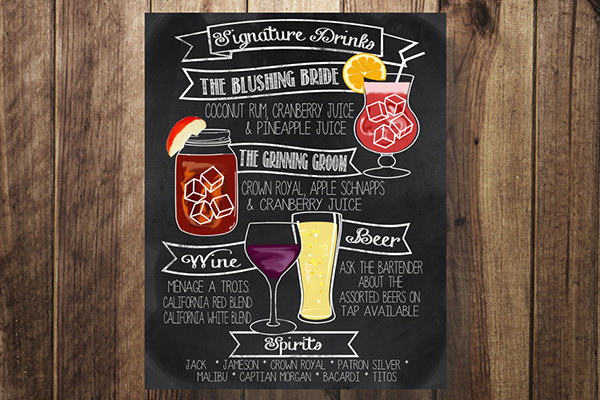 Signature Drinks
THE BLUSHING BRIDE
COCONUT RUM, CRANBERRY JUICE
& PINEAPPLE JUICE
THE GRINNING GROOM
CROWN ROYAL, APPLE SCHNAPPS
& CRANBERRY JUICE
Wine
MÉNAGE A TROIS
CALIFORNIA RED BLEND
CALIFORNIA WHITE BLEND
Beer
ASK THE BARTENDER
ABOUT THE
ASSORTED BEERS ON
TAP AVAILABLE
Spirits
JACK * JAMESON * CROWN ROYAL * PATRON SILVER *
MALIBU * CAPTIAN MORGAN * BACARDI * TITOS